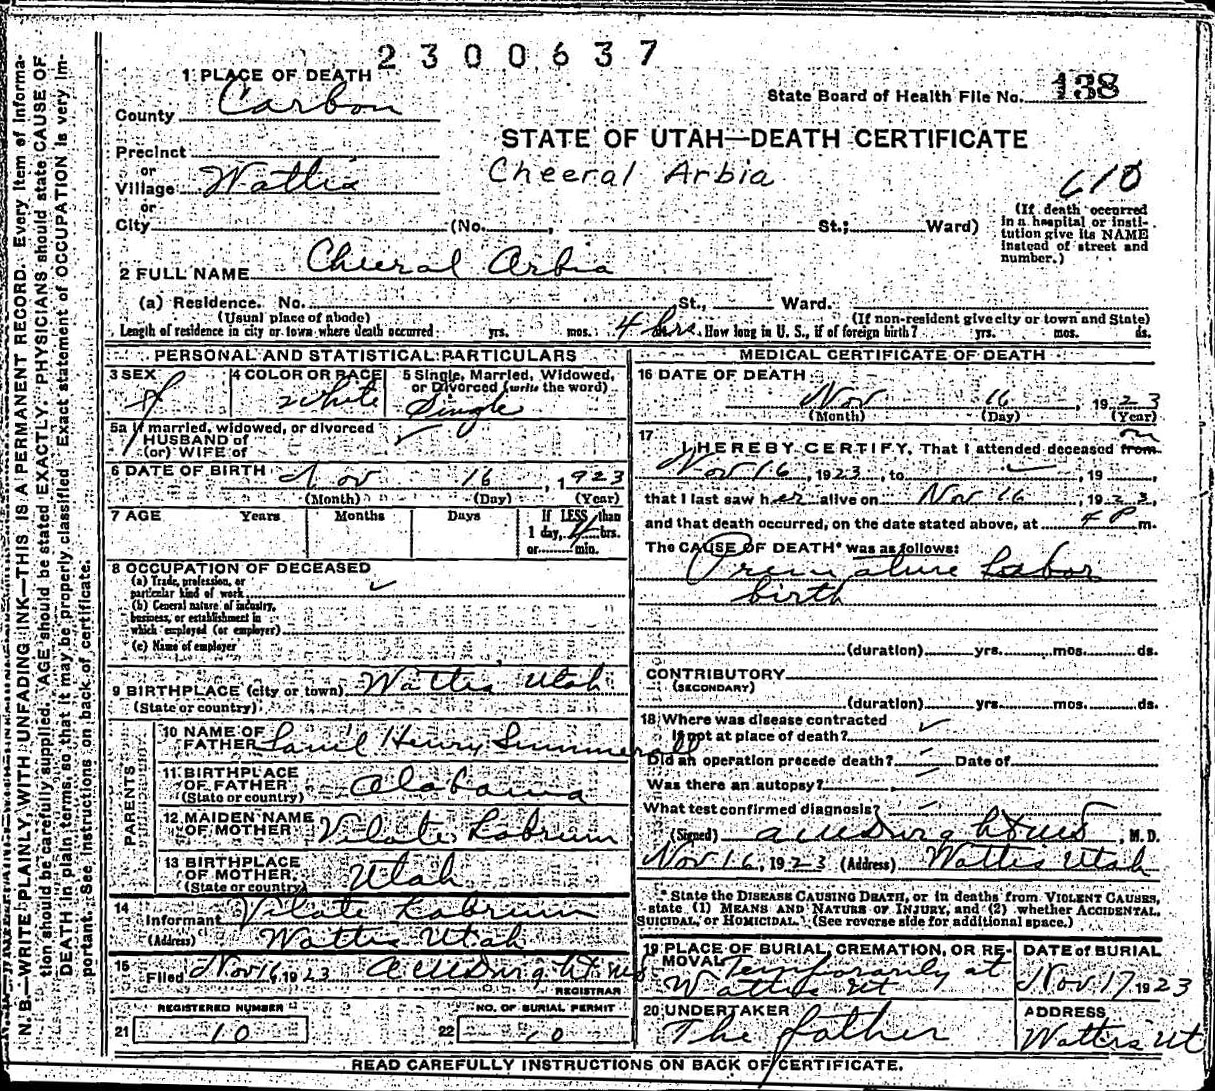 2300637
1 PLACE OF DEATH
County Carbon
State Board of Health File No. 138
STATE OF UTAH—DEATH CERTIFICATE
Precinct
or
Village Wattis
Cheeral Arbia
610
or
City (No. , St.; Ward)
(If death occurred in a hospital or institution give its NAME instead of street and number.)
2 FULL NAME Cheeral Arbia
(a) Residence. No. St., Ward.
(Usual place of abode) (If non-resident give city or town and State)
Length of residence in city or town where death occurred yrs. mos. 4 hrs. How long in U. S., if of foreign birth? yrs. mos. ds.
PERSONAL AND STATISTICAL PARTICULARS
3 SEX f
4 COLOR OR RACE white
5 Single, Married, Widowed, or Divorced (write the word) Single
5a If married, widowed, or divorced
HUSBAND of
(or) WIFE of
6 DATE OF BIRTH Nov 16, 1923
(Month) (Day) (Year)
7 AGE Years Months Days If LESS than 1 day, 4 hrs. or min.
8 OCCUPATION OF DECEASED
(a) Trade, profession, or particular kind of work
(b) General nature of industry, business, or establishment in which employed (or employer)
(c) Name of employer
9 BIRTHPLACE (city or town) Wattis Utah
(State or country)
PARENTS
10 NAME OF FATHER Sam'l Henry Summerall
11 BIRTHPLACE OF FATHER Alabama
(State or country)
12 MAIDEN NAME OF MOTHER Vilate Labrum
13 BIRTHPLACE OF MOTHER Utah
(State or country)
14 Informant Vilate Labrum
(Address) Wattis Utah
15 Filed Nov 16, 1923
REGISTRAR
REGISTERED NUMBER
21 10
NO. OF BURIAL PERMIT
22 10
MEDICAL CERTIFICATE OF DEATH
16 DATE OF DEATH
Nov 16, 1923
(Month) (Day) (Year)
17 I HEREBY CERTIFY, That I attended deceased from on
Nov 16, 1923, to , 19 ,
that I last saw her alive on Nov 16, 1923,
and that death occurred, on the date stated above, at 4 P m.
The CAUSE OF DEATH* was as follows:
Premature Labor
birth
(duration) yrs. mos. ds.
CONTRIBUTORY
(SECONDARY)
(duration) yrs. mos. ds.
18 Where was disease contracted
if not at place of death?
Did an operation precede death? Date of
Was there an autopsy?
What test confirmed diagnosis?
(Signed) , M. D.
Nov 16, 1923 (Address) Wattis Utah
* State the DISEASE CAUSING DEATH, or in deaths from VIOLENT CAUSES,
state (1) MEANS AND NATURE OF INJURY, and (2) whether ACCIDENTAL,
SUICIDAL, or HOMICIDAL. (See reverse side for additional space.)
19 PLACE OF BURIAL, CREMATION, OR REMOVAL Temporarily at
Wattis Ut
DATE of BURIAL
Nov 17 1923
20 UNDERTAKER
The father
ADDRESS
Wattis Ut
READ CAREFULLY INSTRUCTIONS ON BACK OF CERTIFICATE.
N. B.—WRITE PLAINLY, WITH UNFADING INK—THIS IS A PERMANENT RECORD. Every item of information should be carefully supplied. AGE should be stated EXACTLY. PHYSICIANS should state CAUSE OF
DEATH in plain terms, so that it may be properly classified. Exact statement of OCCUPATION is very important. See instructions on back of certificate.